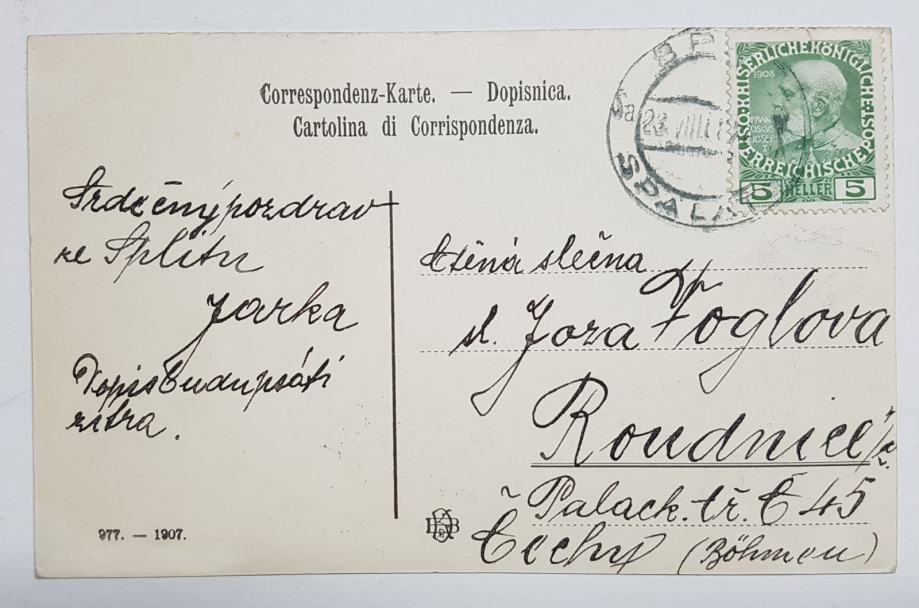 Correspondenz-Karte. — Dopisnica.
Cartolina di Corrispondenza.
KAISERLICHE KÖNIGLICHE
ÖSTERREICHISCHE POST
1908
5 HELLER 5
SPALA
23. VIII.
Srdečný pozdrav
ze Splitu
Jarka
Dopis budu psáti
zítra.
Ctěná slečna
sl. Jora Foglova
Roudnice
Palack. tř. č 45
Čechy (Böhmen)
977. — 1907.